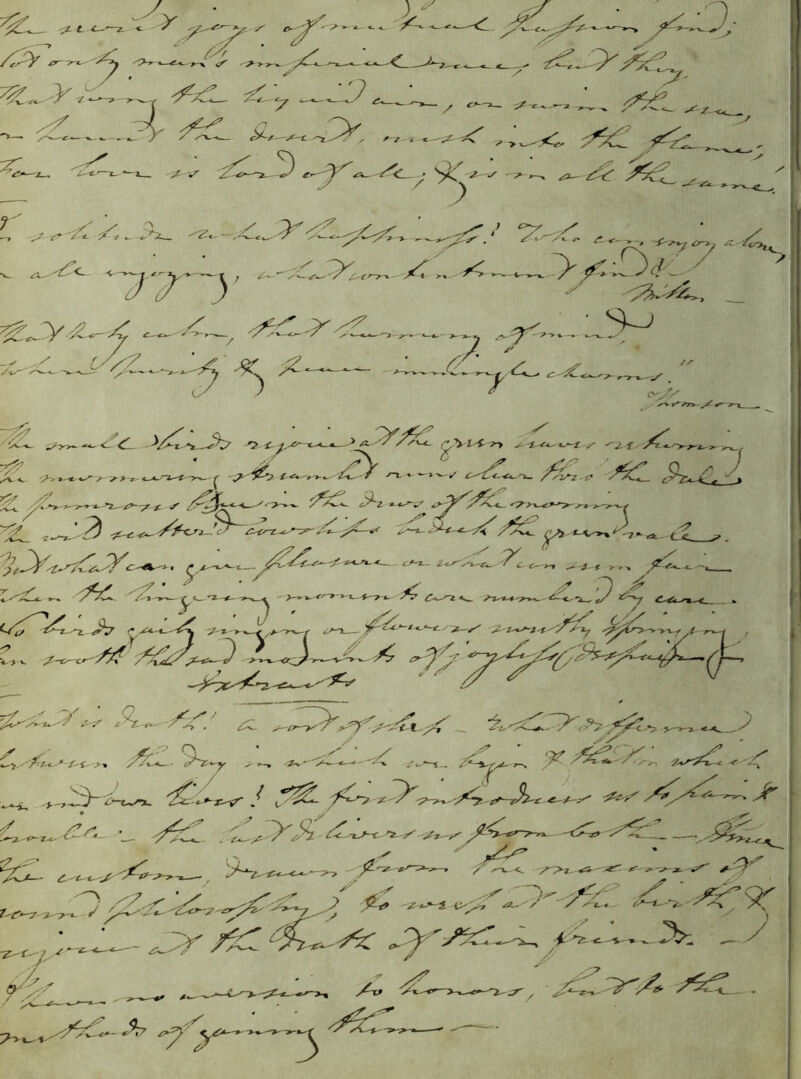 The secret joys of mutual passion find;
Not only man's imperial race; but they
That wing the liquid air, or swim the sea,
or haunt the desert, rush into the flame;
For love is lord of all; & is in all the same.
In solitude what happiness! Who can enjoy alone,
or all enjoying, what contentment find?
Milton —
That holy calm, that harmony of mind,
Where purity & peace immingle charms."
Thomson —
The small birds rejoice at the green leaves returning
The murmuring streamlet runs clear thro' the dale
The primroses blow in the dews of the morning
The wild scatter'd cowslips bedeck the green vale.
But what can give pleasure or what can seem fair
When the lingering moments are number'd by care.
No birds gaily singing or flowers sweetly springing,
Can sooth the sad moments of joyless despair —
Extracts
What is death! a sort of sleep — What difference
between the day in which we begin & that in which
we end our lives! The first introduces us to pain &
trouble — the last delivers us from both — Hence
the custom, drawn from the maxims of
sound philosophy, to weep at the birth, &
rejoice at the death of their friends. —
I have no aversion to honors, but to the
methods of gaining them —